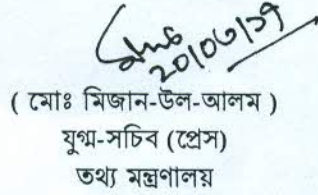 ২০/০৬/১৭
( মোঃ মিজান-উল-আলম )
যুগ্ম-সচিব (প্রেস)
তথ্য মন্ত্রণালয়